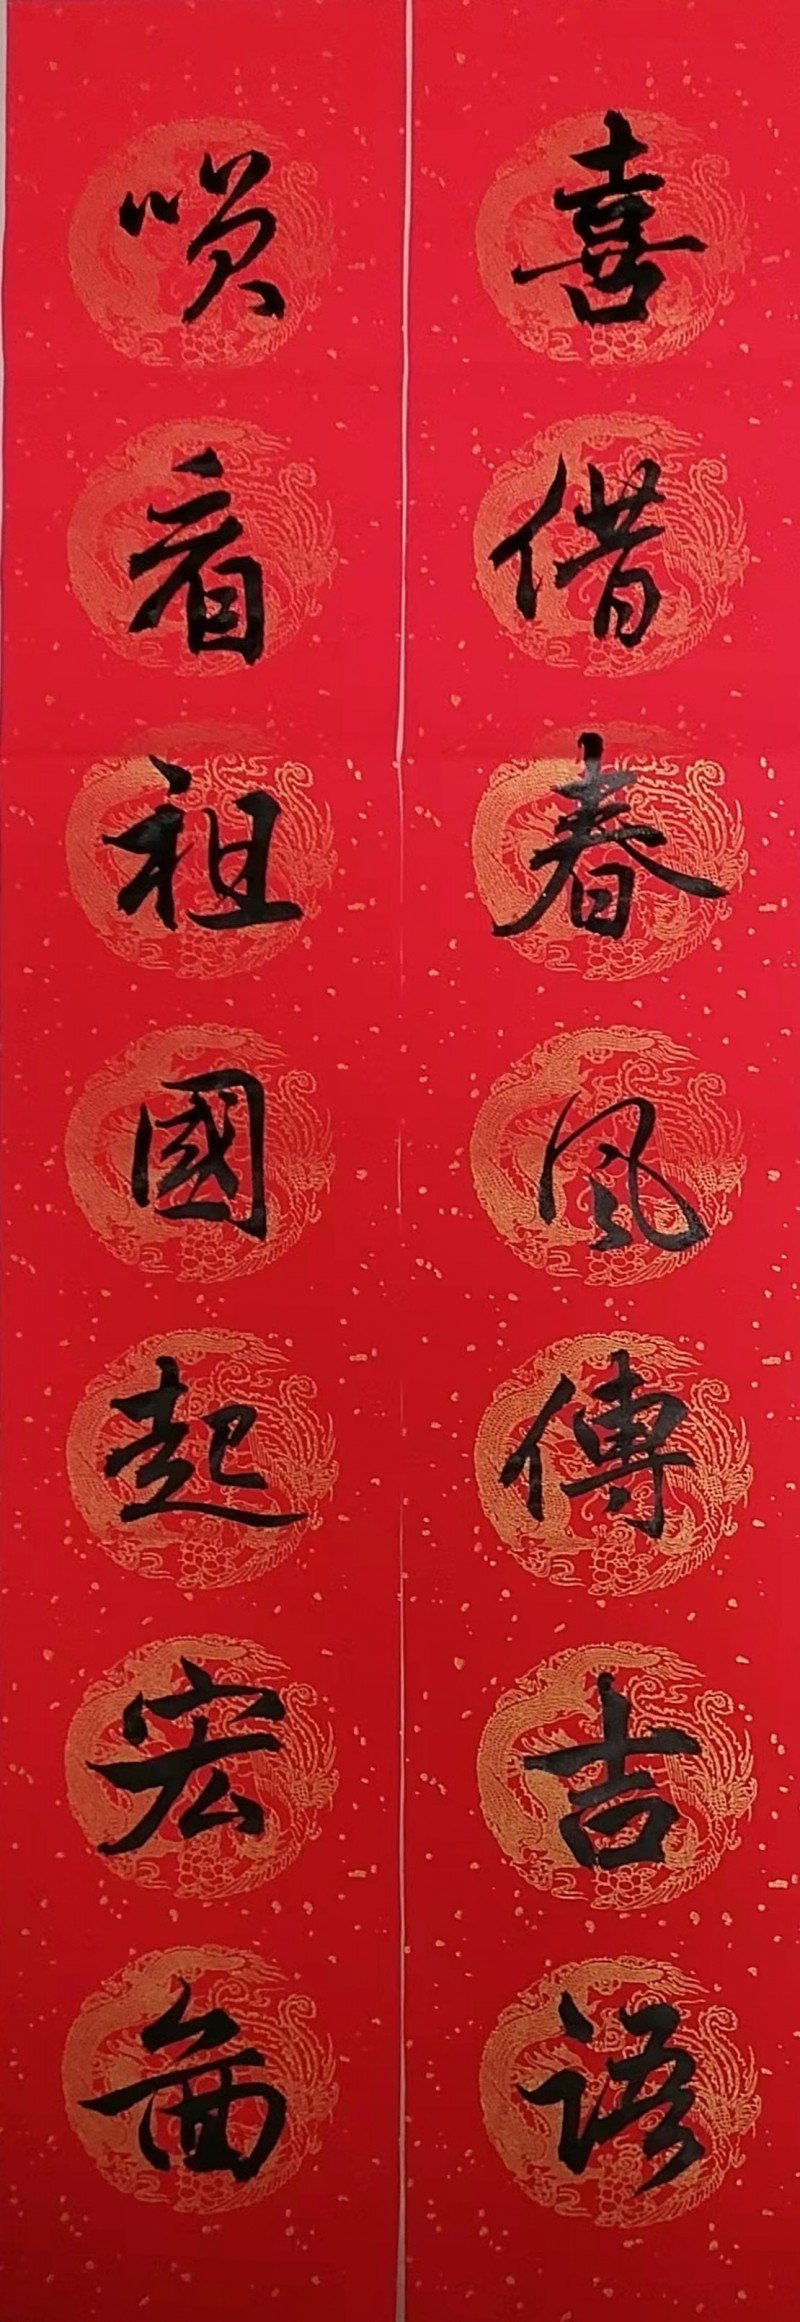 喜借春風傳吉語
看祖國起宏圖